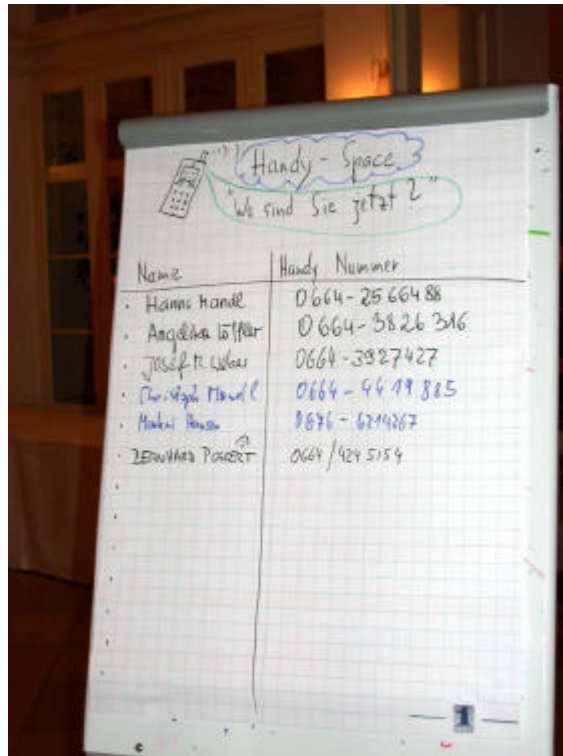 Handy-Space
"Wo sind Sie jetzt?"
Name Handy Nummer
Hanns Handl 0664-2566488
Angelika Löffler 0664-3826316
Josef 0664-3927427
Christoph Mandl 0664-4419885
Markus 0676-6214267
BERNHARD 0664/4245154
1